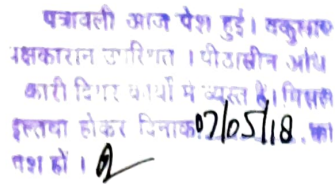 पत्रावली आज पेश हुई। वकुलाय
पक्षकारान उपस्थित । पीठासीन अधि
कारी दिगर कार्यो में व्यस्त है। मिसल
इल्तवा होकर दिनांक 07/05/18 . को
पेश हों ।